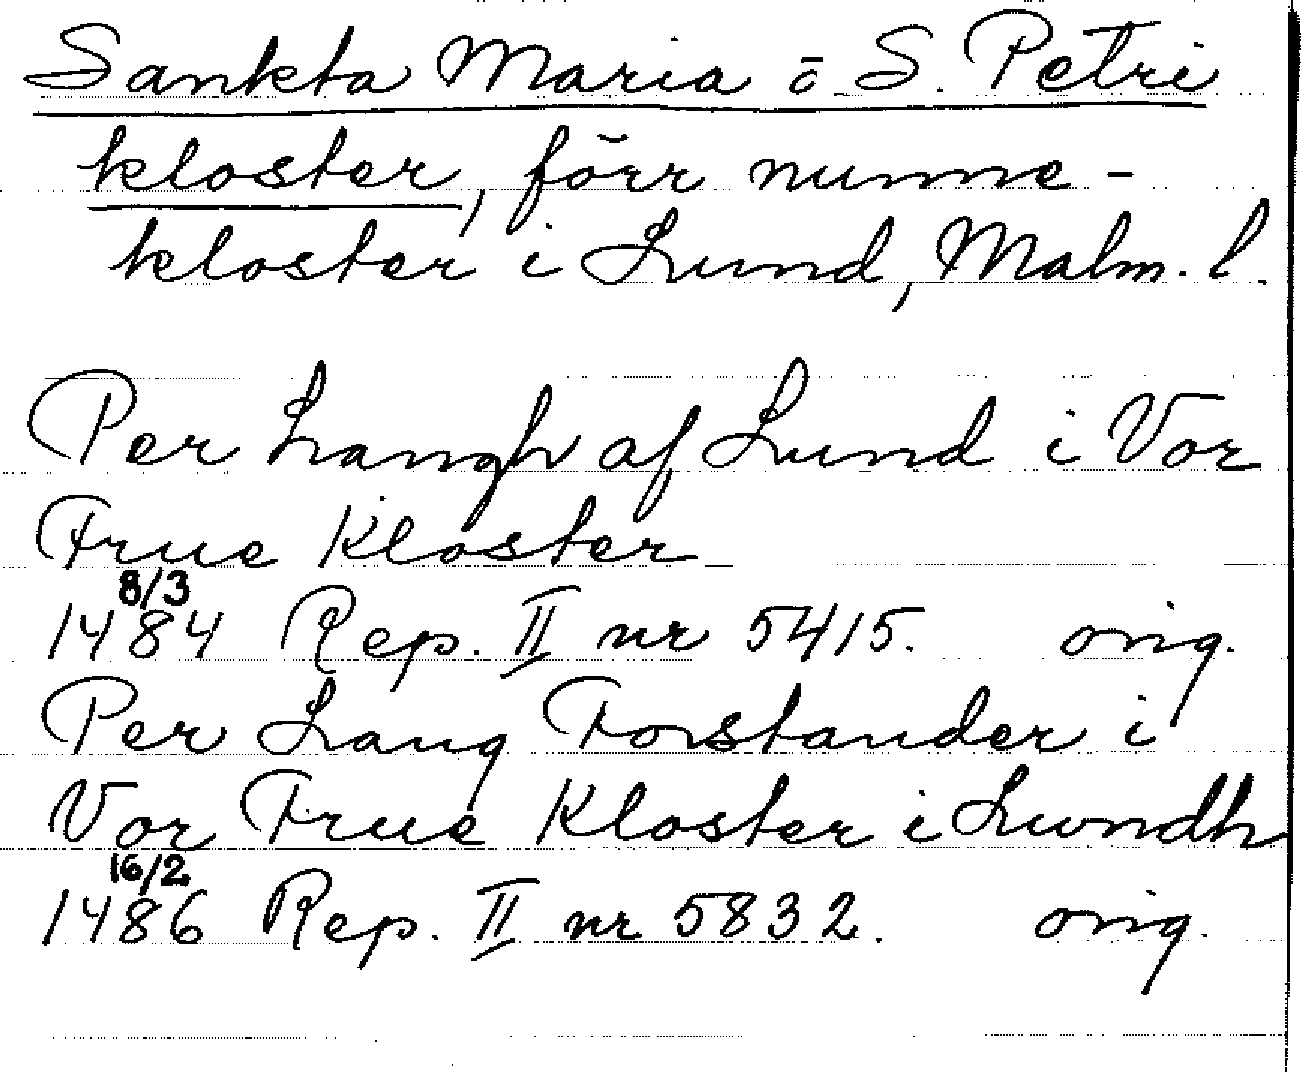 Sankta Maria o S. Petri
kloster, förr nunne-
kloster i Lund, Malm. l.
Per Langh af Lund i Vor
Frue Kloster
8/3
1484 Rep. II nr 5415. orig.
Per Lang Forstander i
Vor Frue Kloster i Lundh
16/2
1486 Rep. II nr 5832. orig.